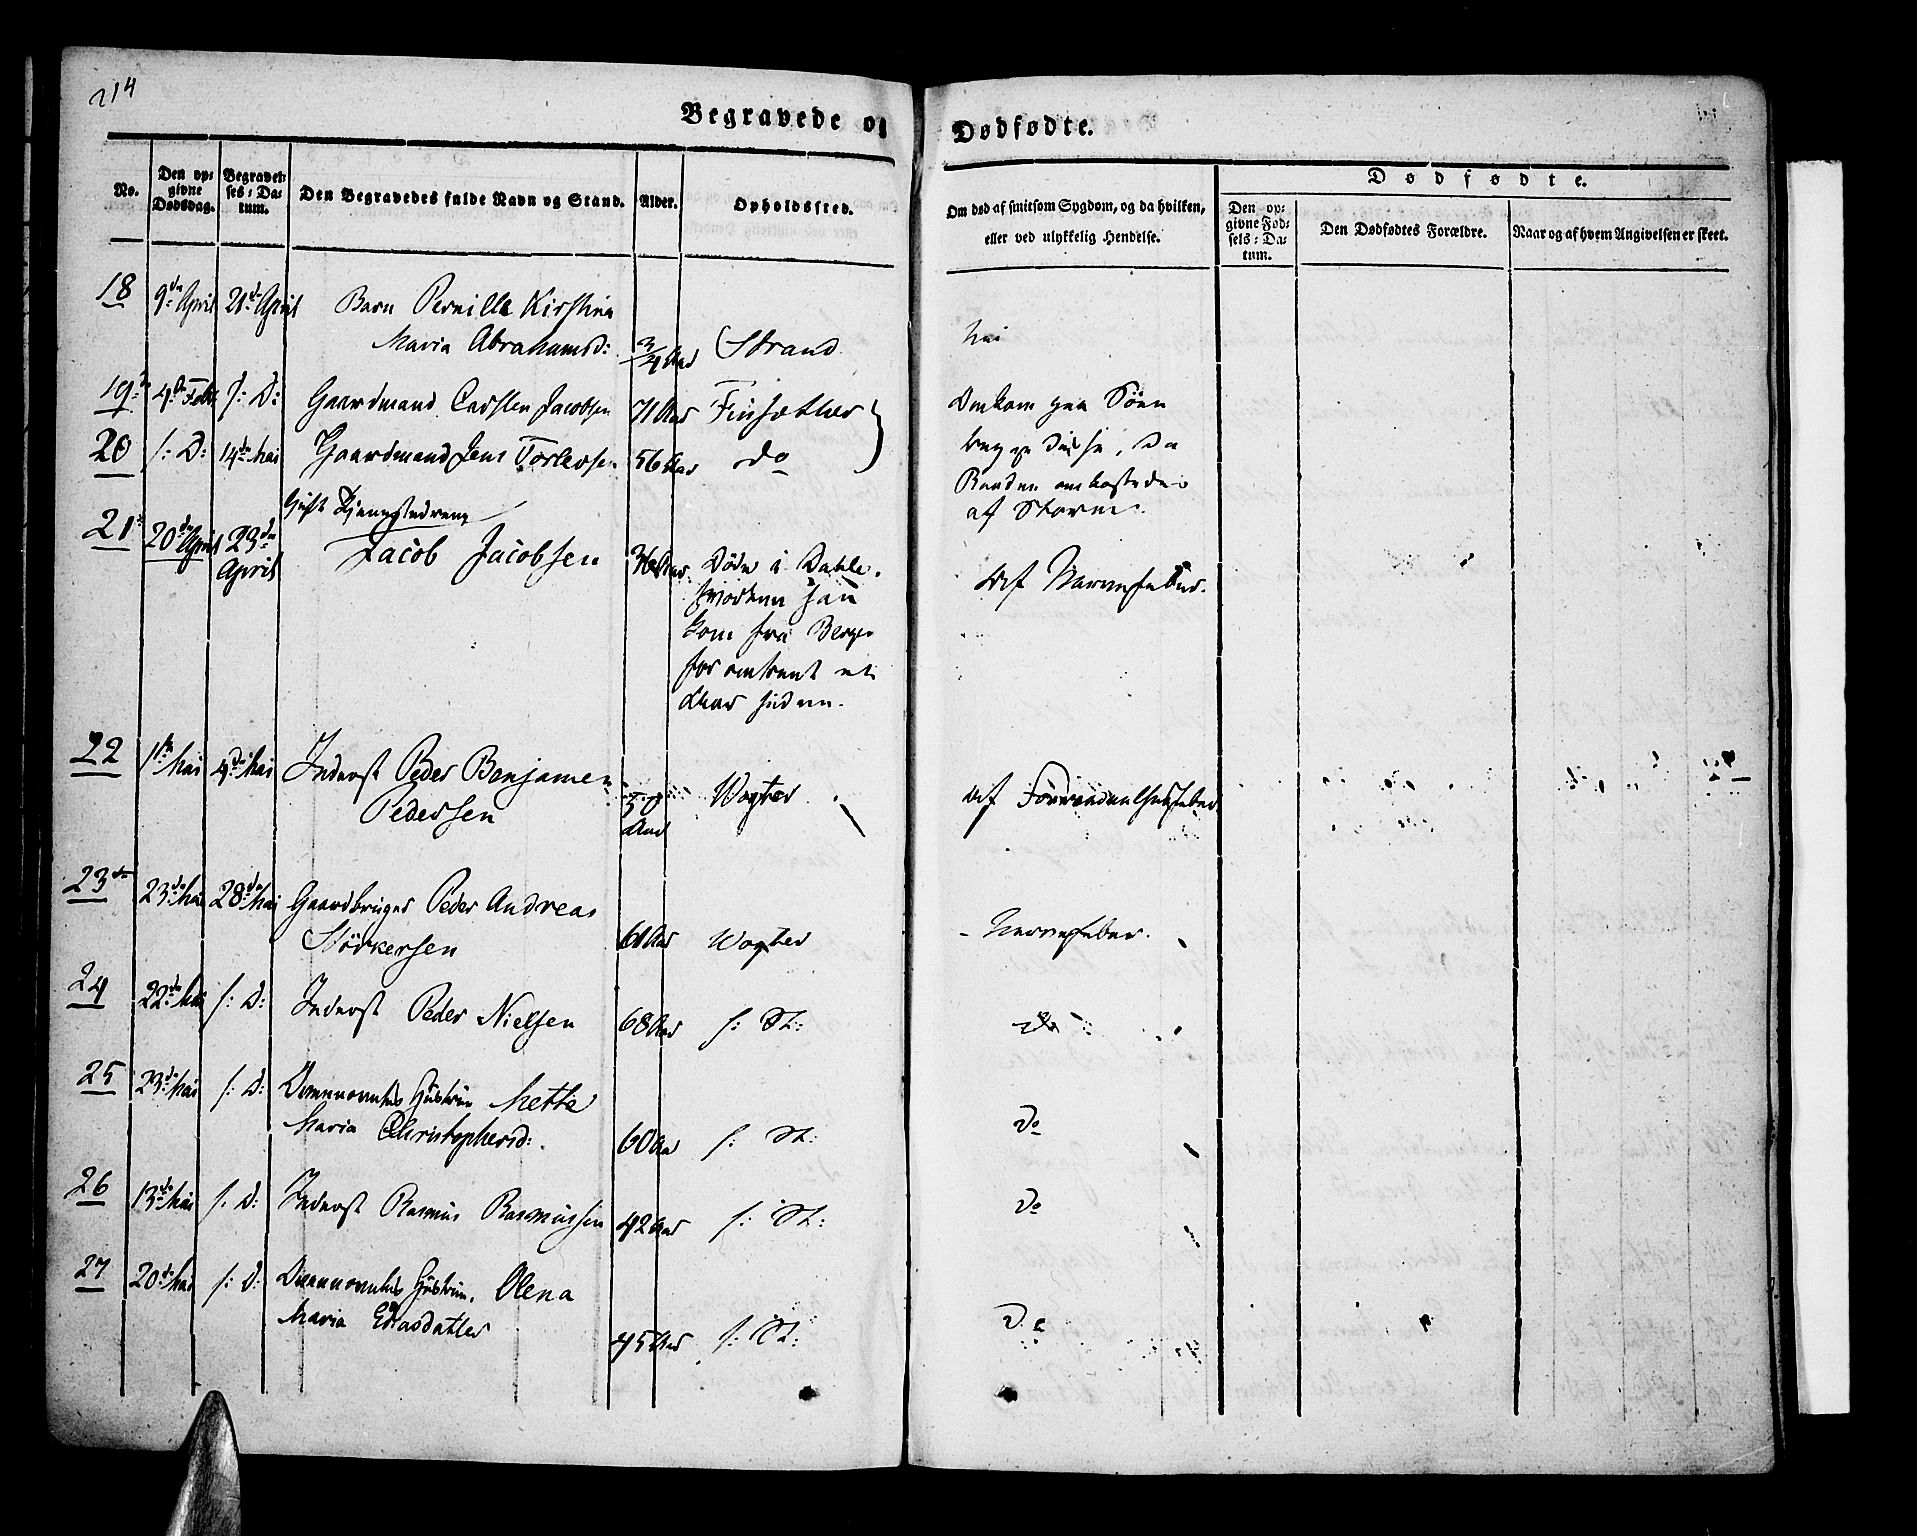 214
Begravede og
Dødfødte.
No.
Den opgivne Dødsdag.
Begravelses-Datum.
Den Begravedes fulde Navn og Stand.
Alder.
Opholdssted.
Om død af smitsom Sygdom, og da hvilken,
eller ved ulykkelig Hendelse.
Dødfødte.
Den opgivne Fødsels-Datum.
Den Dødfødtes Forældre.
Naar og af hvem Angivelsen er skeet.
18 9de April 21de April Barn Pernille Kirstina
Maria Abrahamsd: 3/4 Aar Strand nei
19 4de Febr s: D: Gaardmand Carsten Jacobsen 71 Aar Finsæther Omkom paa Søen
20 s: D: 14de Mai Gaardmand Jens Torlevsen 56 Aar do begge disse, da
Baaden omkastedes
af Storm.
Gift
21 20de April 23de April Jacob Jacobsen 36 Aar Døde i Dahle,
hvorhen han
kom fra Bergen
for omtrent et
Aar siden.
Af Nervefeber.
22 1ste Mai 4de Mai Inderst Peder Benjamen
Pedersen 50 Aar Wogter Af Forraadnelsesfeber
23 23de Mai 28de Mai Gaardbruger Peder Andreas
Størkersen 61 Aar Wogter - Nervefeber.
24 22de Mai s: D: Inderst Peder Nielsen 68 Aar s: St: do
25 23de Mai s: D: Hustrue Mette
Maria Christophersd: 60 Aar s: St: Do
26 13de Mai s: D: Inderst Rasmus Rasmussen 42 Aar s: St: Do
27 20de Mai s: D: Hustrue Olena
Maria 45 Aar s: St: Do